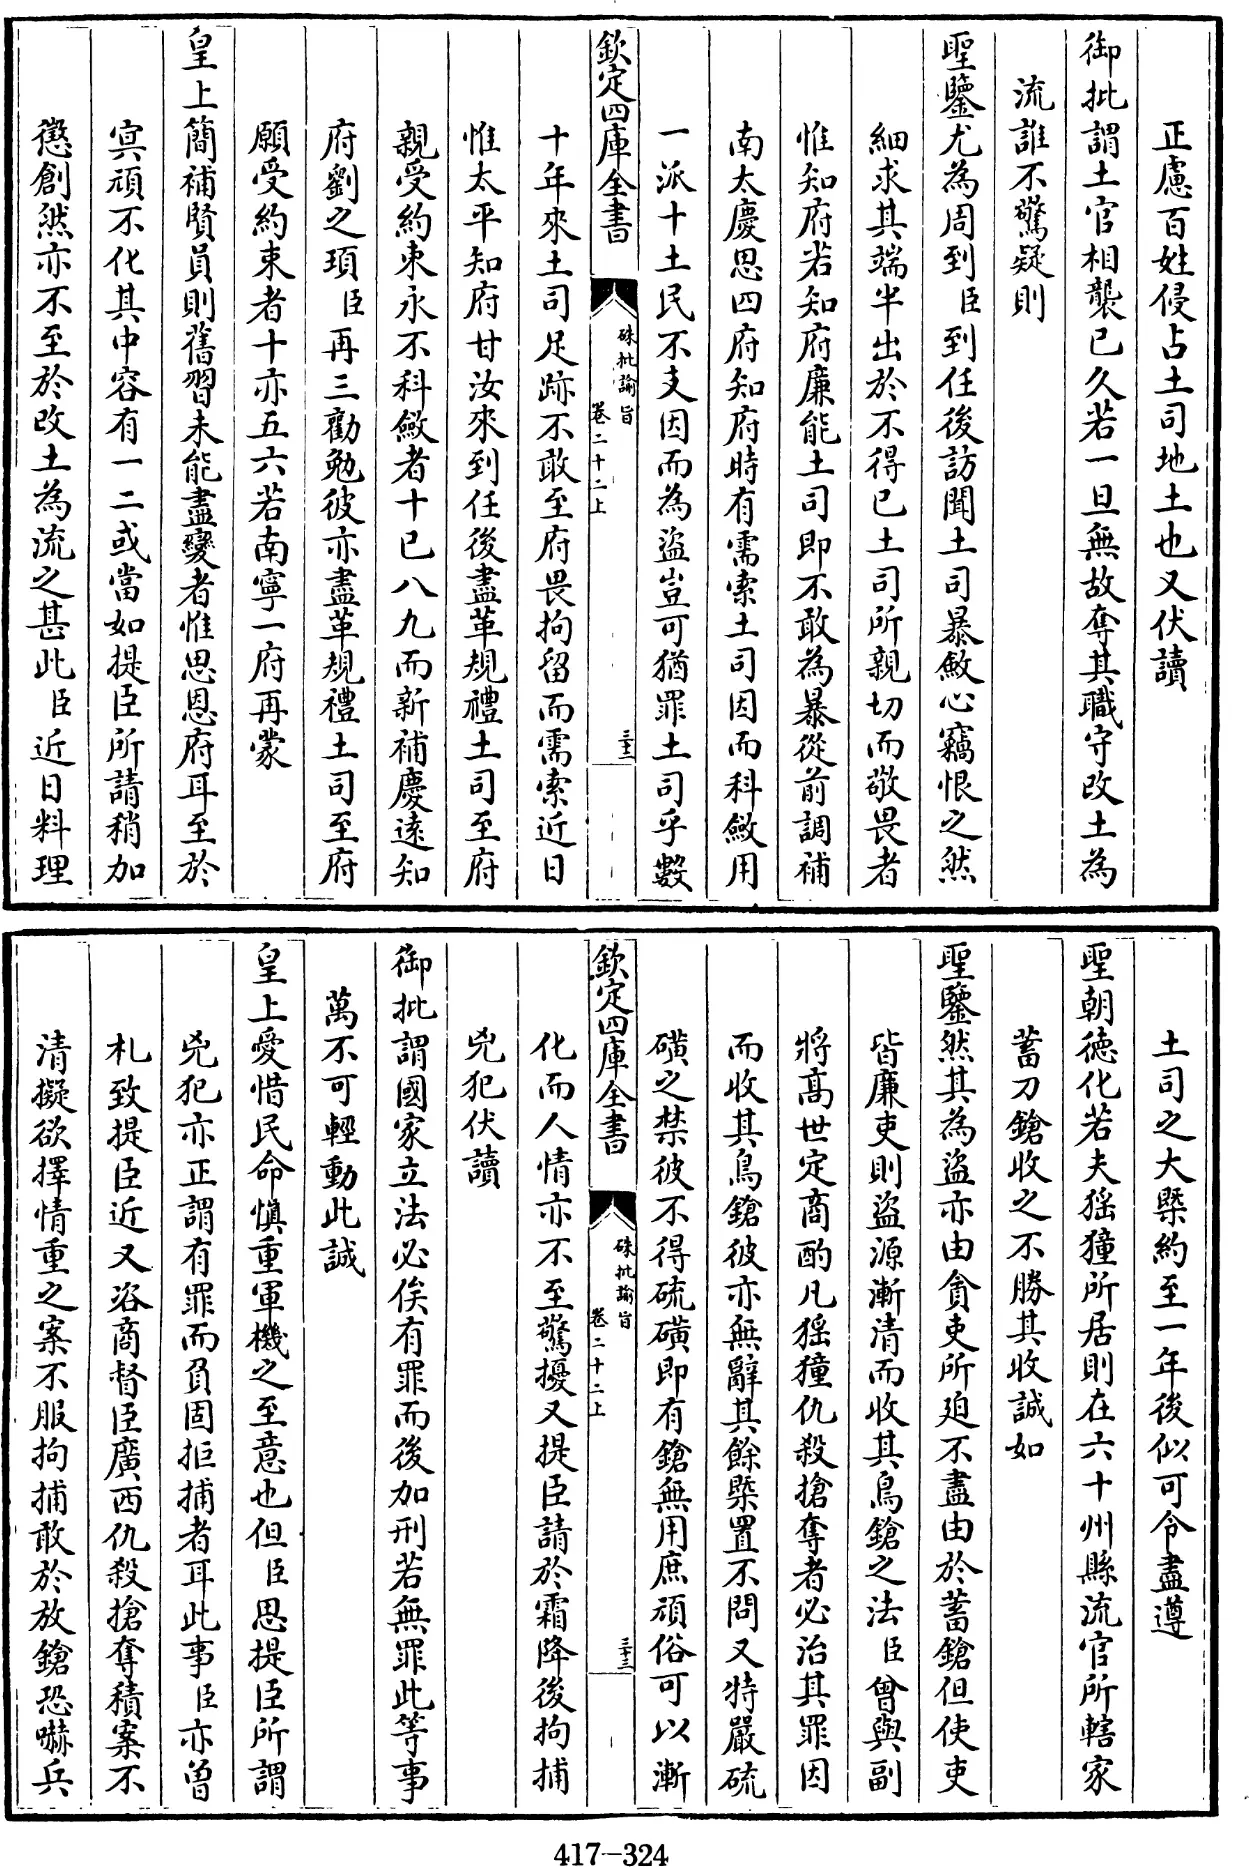 正慮百姓侵占土司地土也又伏讀
御批謂土官相襲已久若一旦無故奪其職守改土為
流誰不驚疑則
聖鑒尤為周到臣到任後訪聞土司暴斂心竊恨之然
細求其端半出於不得已土司所親切而敬畏者
惟知府若知府廉能土司即不敢為暴從前調補
南太慶思四府知府時有需索土司因而科斂用
一派十土民不支因而為盜豈可猶罪土司乎數
欽定四庫全書
硃批諭旨
卷二十二上
三十二
十年來土司足跡不敢至府畏拘留而需索近日
惟太平知府甘汝來到任後盡革規禮土司至府
親受約束永不科斂者十已八九而新補慶遠知
府劉之頊臣再三勸勉彼亦盡革規禮土司至府
願受約束者十亦五六若南寧一府再蒙
皇上簡補賢員則舊習未能盡變者惟思恩府耳至於
冥頑不化其中容有一二或當如提臣所請稍加
懲創然亦不至於改土為流之甚此臣近日料理
土司之大槩約至一年後似可令盡遵
聖朝德化若夫猺獞所居則在六十州縣流官所轄家
蓄刀鎗收之不勝其收誠如
聖鑒然其為盜亦由貪吏所迫不盡由於蓄鎗但使吏
皆廉吏則盜源漸清而收其鳥鎗之法臣曾與副
將高世定商酌凡猺獞仇殺搶奪者必治其罪因
而收其鳥鎗彼亦無辭其餘槩置不問又特嚴硫
磺之禁彼不得硫磺即有鎗無用庶頑俗可以漸
欽定四庫全書
硃批諭旨
卷二十二上
三十三
化而人情亦不至驚擾又提臣請於霜降後拘捕
兇犯伏讀
御批謂國家立法必俟有罪而後加刑若無罪此等事
萬不可輕動此誠
皇上愛惜民命慎重軍機之至意也但臣思提臣所謂
兇犯亦正謂有罪而負固拒捕者耳此事臣亦曾
札致提臣近又咨商督臣廣西仇殺搶奪積案不
清擬欲擇情重之案不服拘捕敢於放鎗恐嚇兵
417-324